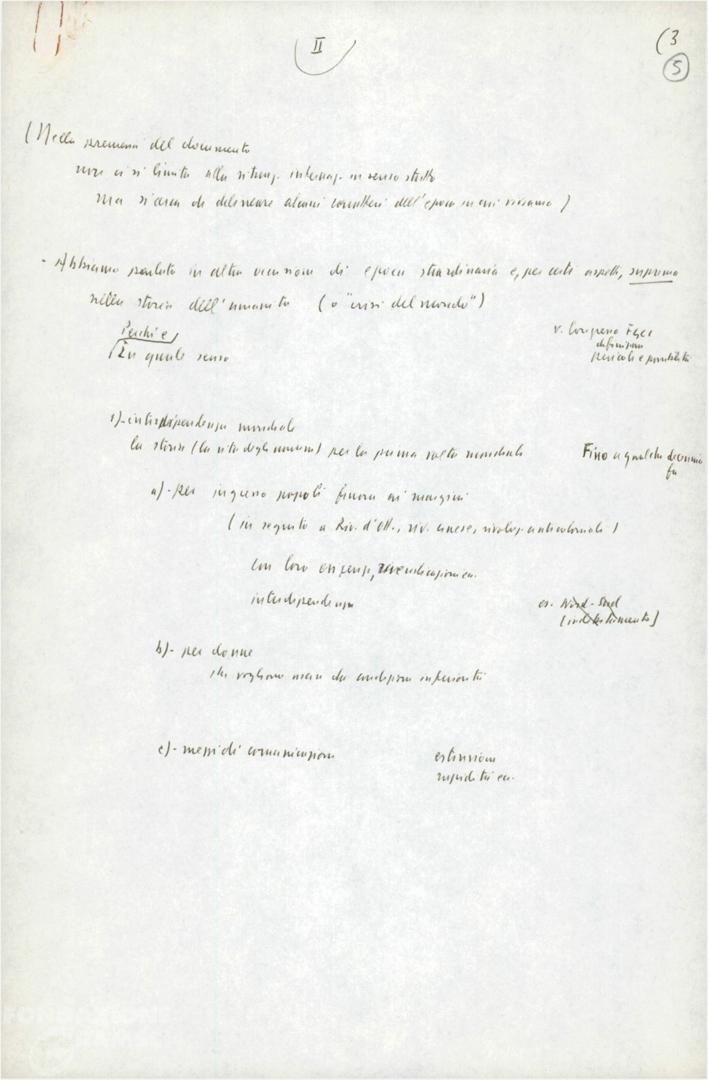 II
(3
5
(Nella premessa del documento
non ci si limita alla situaz. internaz. in senso stretto
ma si cerca di delineare alcuni caratteri dell'epoca in cui viviamo)
- Abbiamo parlato in altre occasioni di epoca straordinaria e, per certi aspetti, suprema
nella storia dell'umanità (o "crisi del mondo")
Perchè e
In quale senso
v. Congresso FGCI
definizione
pericoli e possibilità
1)- interdipendenza mondiale
la storia (la vita degli uomini) per la prima volta mondiale
Fino a qualche decennio
fa
a)- per ingresso popoli finora ai margini
(in seguito a Riv. d'Ott., riv. cinese, rivoluz. anticoloniali)
con loro esigenze, rivendicazioni ecc.
interdipendenza
es. Nord-Sud
b)- per donne
che vogliono uscire da condizione inferiorità
c)- mezzi di comunicazione
estensione
rapidità ecc.